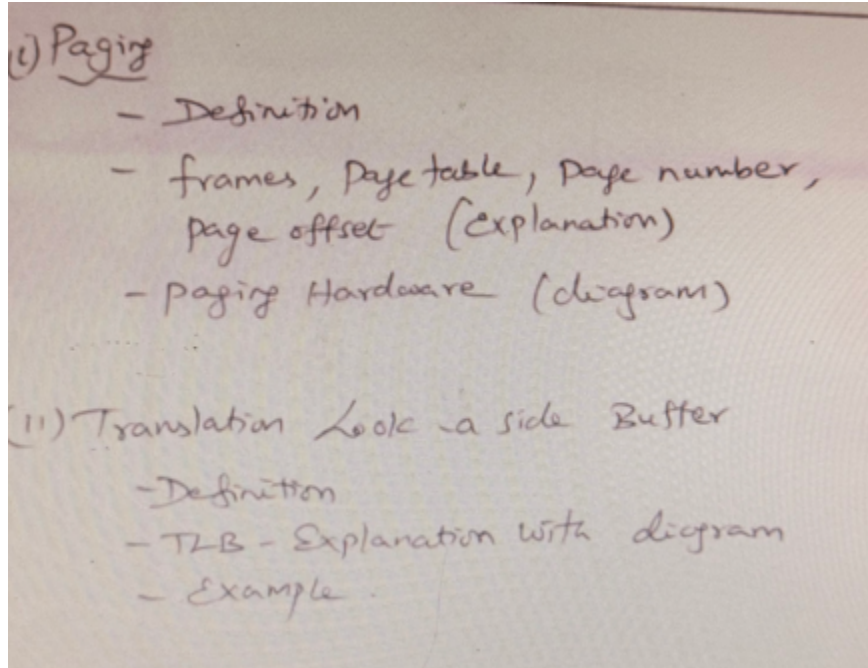 (i) Paging
- Definition
- frames, Page table, Page number,
page offset (Explanation)
- paging Hardware (diagram)
(ii) Translation Look-a side Buffer
- Definition
- TLB - Explanation with diagram
- Example.